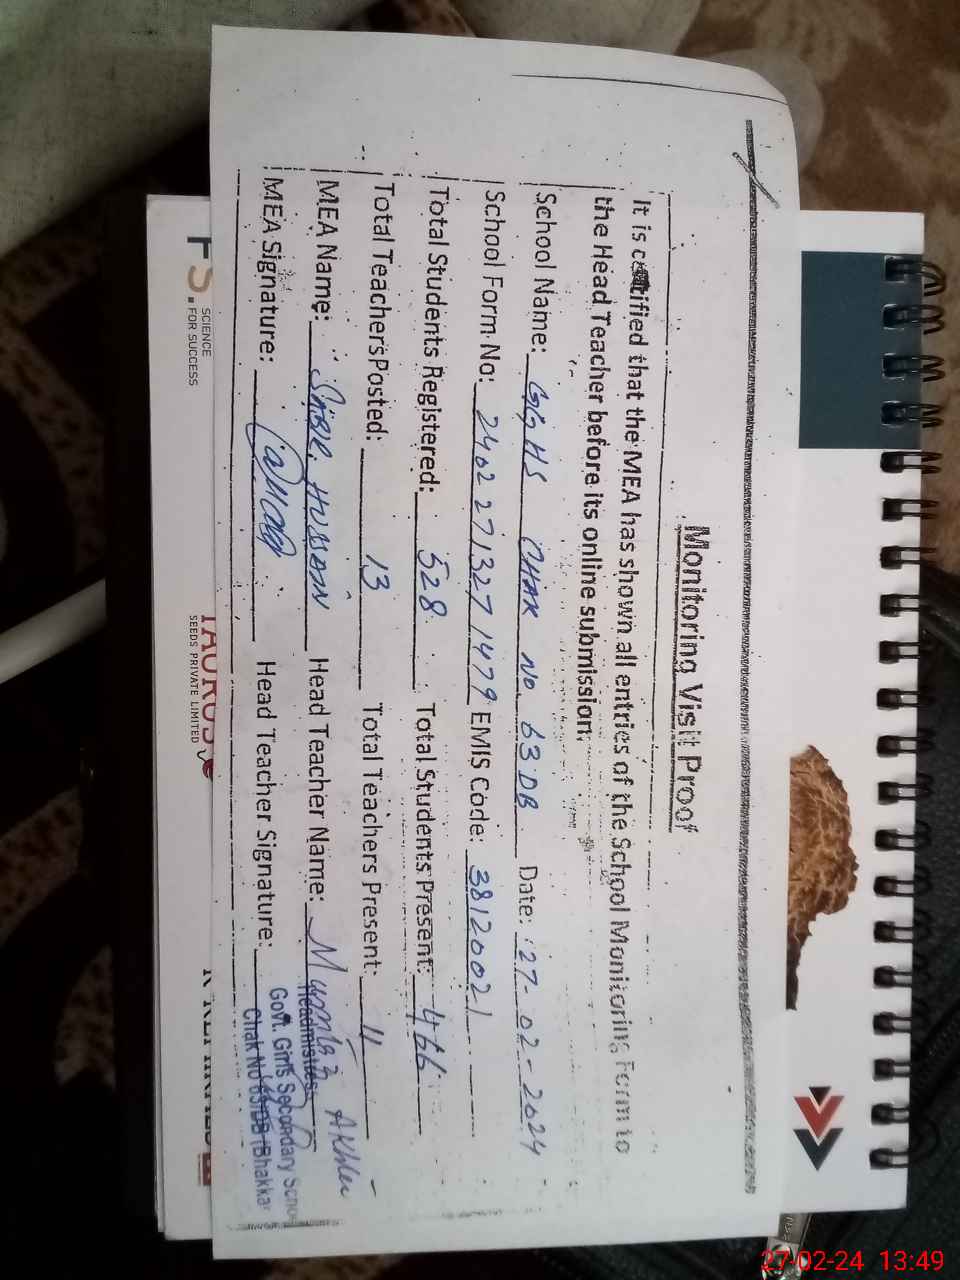 Monitoring Visit Proof
It is certified that the MEA has shown all entries of the School Monitoring Form to
the Head Teacher before its online submission.
School Name: GGHS CHAK NO 63 DB Date: 27-02-2024
School Form No: 2402271327 1479 EMIS Code: 38120021
Total Students Registered: 528 Total Students Present: 466
Total Teachers Posted: 13 Total Teachers Present: 11
MEA Name: Head Teacher Name: Akhter
MEA Signature: Head Teacher Signature:
Headmistress
Govt. Girls Secondary
Chak No 63/DB (Bhakkar
SCIENCE
FOR SUCCESS
TAURUS
SEEDS PRIVATE LIMITED
27-02-24 13:49